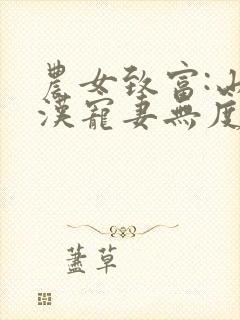 農女致富:山
漢寵妻無度
蓋草